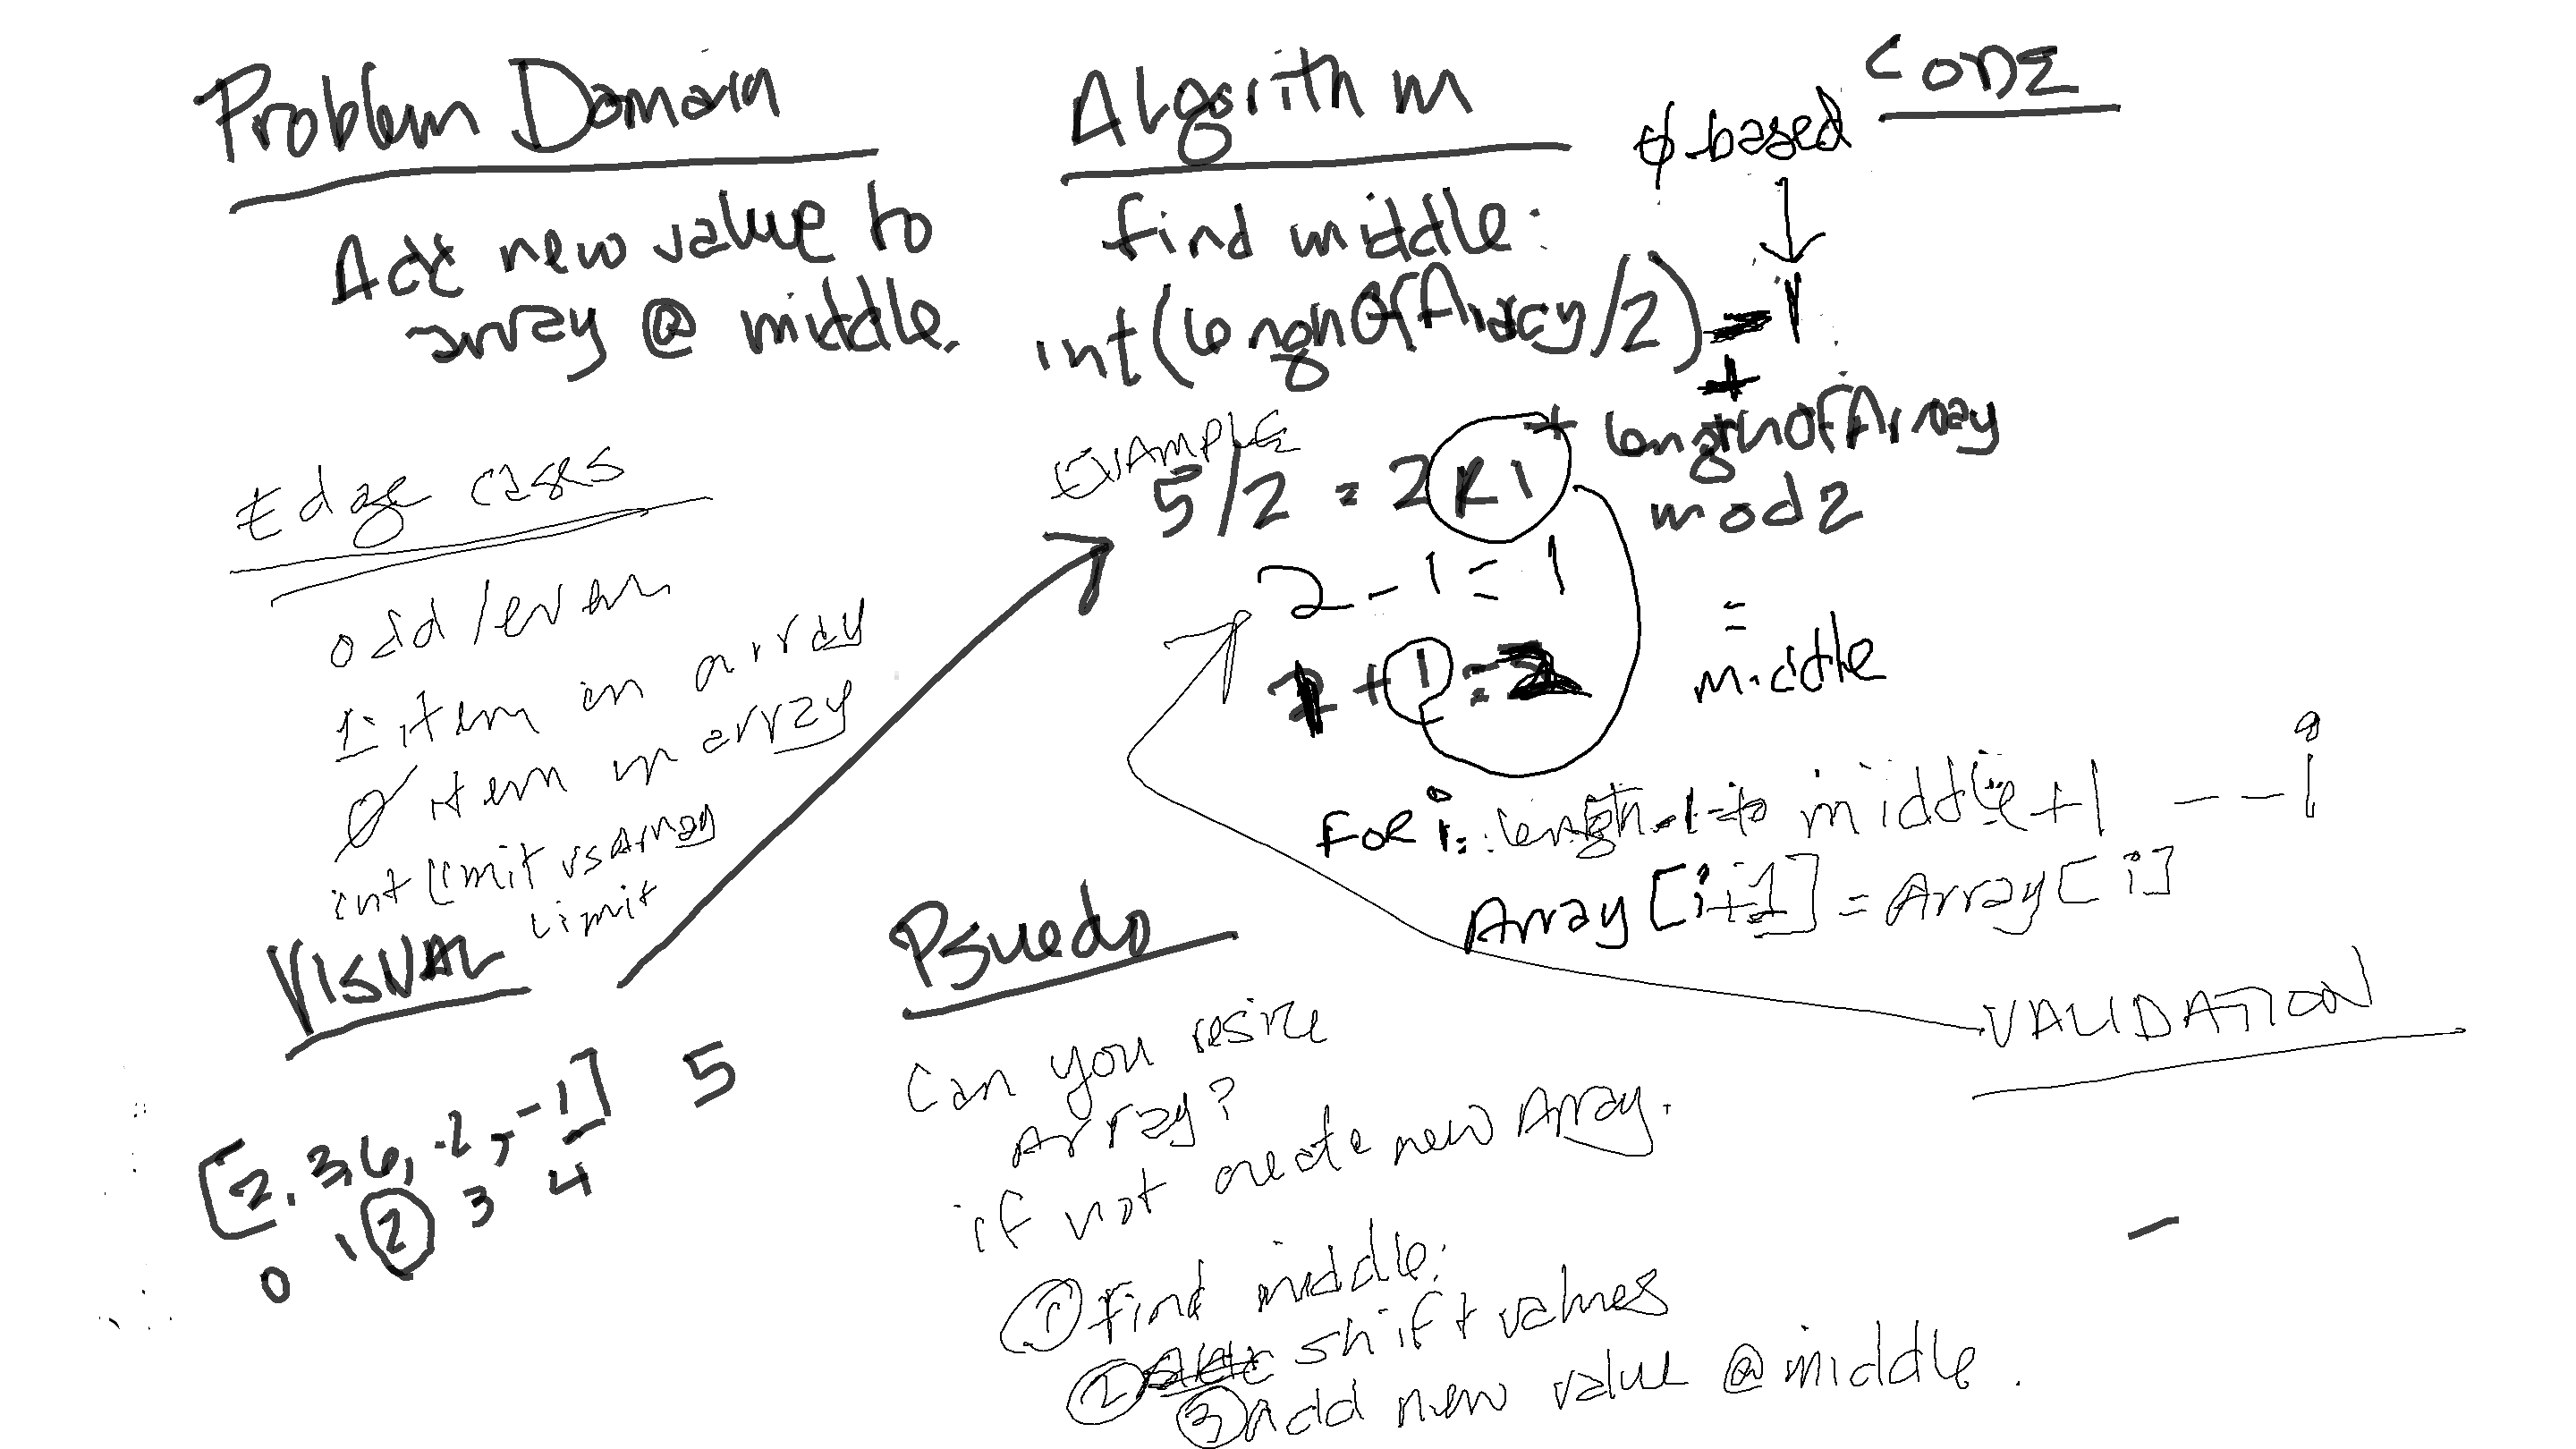 Problem Domain
Add new value to
array @ middle.
Edge cases
odd/even
1 item in array
0 item in array
int limit vs Array
limit
VISUAL
[2, 3, 6, -2, -1] 5
0 1 2 3 4
Algorithm
find middle:
int(lenghOfArray/2) - 1
+
+ lengthOfArray
mod 2
=
middle
0-based
EXAMPLE
5/2 = 2 R 1
2 - 1 = 1
1 + 1 = 2
FOR i: length-1 to middle+1 --i
Array[i+1] = Array[i]
Psuedo
Can you resize
Array?
if not create new Array.
① find middle:
② shift values
③ Add new value @ middle.
CODE
VALIDATION